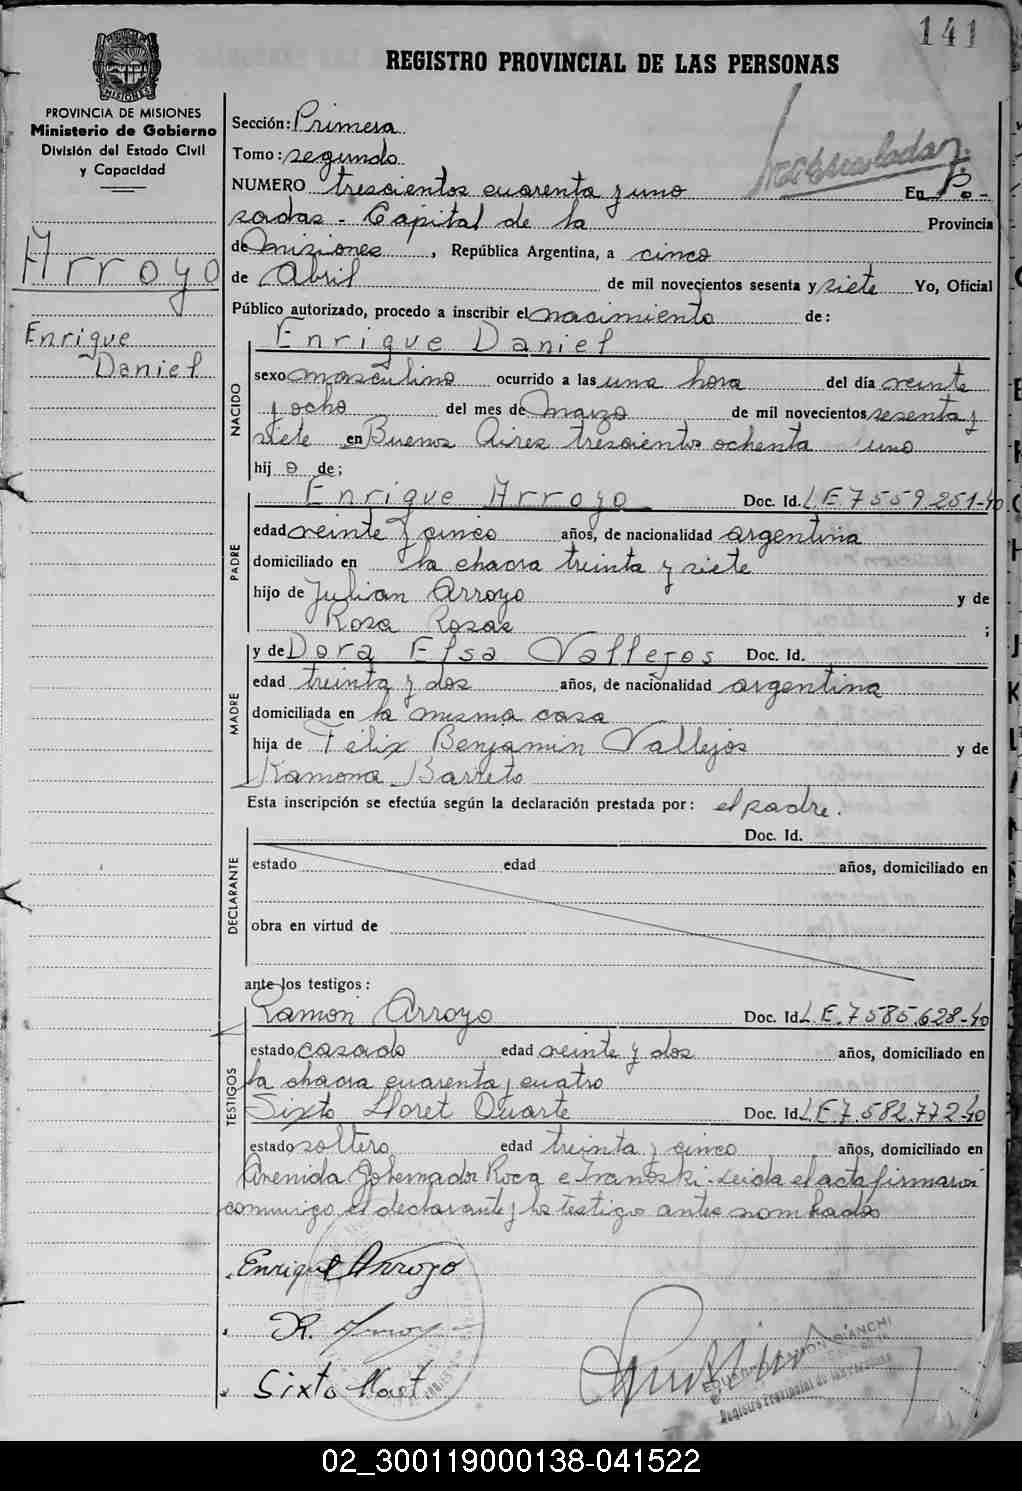 141
REGISTRO PROVINCIAL DE LAS PERSONAS
MISIONES
PROVINCIA DE MISIONES
Ministerio de Gobierno
División del Estado Civil
y Capacidad
Arroyo
Enrique
Daniel
Sección: Primera
Tomo: segundo
NUMERO trescientos cuarenta y uno En Po-
sadas - Capital de la Provincia
de Misiones, República Argentina, a cinco
de Abril de mil novecientos sesenta y siete Yo, Oficial
Público autorizado, procedo a inscribir el nacimiento de:
NACIDO
Enrique Daniel
sexo masculino ocurrido a las una hora del día veinte
y ocho del mes de Marzo de mil novecientos sesenta y
siete en Buenos Aires trescientos ochenta uno
hij o de;
PADRE
Enrique Arroyo Doc. Id. L.E.7559251-40
edad veinte y cinco años, de nacionalidad argentina
domiciliado en la chacra treinta y siete
hijo de Julian Arroyo y de
Rosa Rosas ;
MADRE
y de Dora Elsa Vallejos Doc. Id.
edad treinta y dos años, de nacionalidad argentina
domiciliada en la misma casa
hija de Félix Benjamin Vallejos y de
Ramona Barreto
Esta inscripción se efectúa según la declaración prestada por: el padre.
DECLARANTE
Doc. Id.
estado edad años, domiciliado en
obra en virtud de
ante los testigos:
TESTIGOS
Ramón Arroyo Doc. Id. L.E.7585.628-40
estado casado edad veinte y dos años, domiciliado en
la chacra cuarenta y cuatro
Sixto Lloret Duarte Doc. Id. L.E.7.582.772-40
estado soltero edad treinta y cinco años, domiciliado en
Avenida Gobernador Roca e - Leida el acta firmaron
conmigo, el declarante y los testigos antes nombrados
Enrique Arroyo
R. Arroyo
Sixto Lloret
Registro Provincial de las Personas
02_300119000138-041522